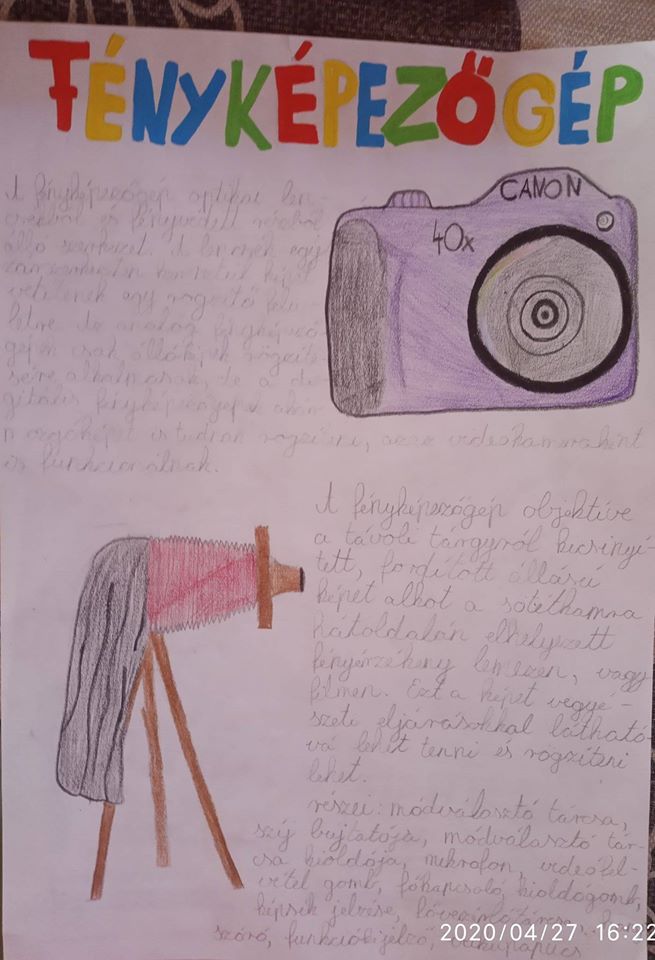 FÉNYKÉPEZŐGÉP
CANON
40x
A fényképezőgép optikai len-
csékből és fényvédett részből
álló szerkezet. A lencsék egy
képet
vetítenek egy rögzítő felü-
letre. Az analóg fényképező
gépek csak állóképek rögzíté-
sére alkalmasak, de a di-
gitális fényképezőgépek akár
mozgóképet is tudnak rögzíteni, azaz videókameraként
is funkcionálnak.
A fényképezőgép objektíve
a távoli tárgyról kicsinyí-
tett, fordított állású
képet alkot a sötétkamra
hátoldalán elhelyezett
fényérzékeny lemezen, vagy
filmen. Ezt a képet vegyé-
szeti eljárásokkal látható-
vá lehet tenni és rögzíteni
lehet.
részei: módválasztó tárcsa,
szíj bujtatója, módválasztó tár-
csa kioldója, mikrofon, videófel-
vétel gomb, főkapcsoló, kioldógomb,
képsík jelzése,
szóró, funkciókijelző,
2020/04/27 16:22